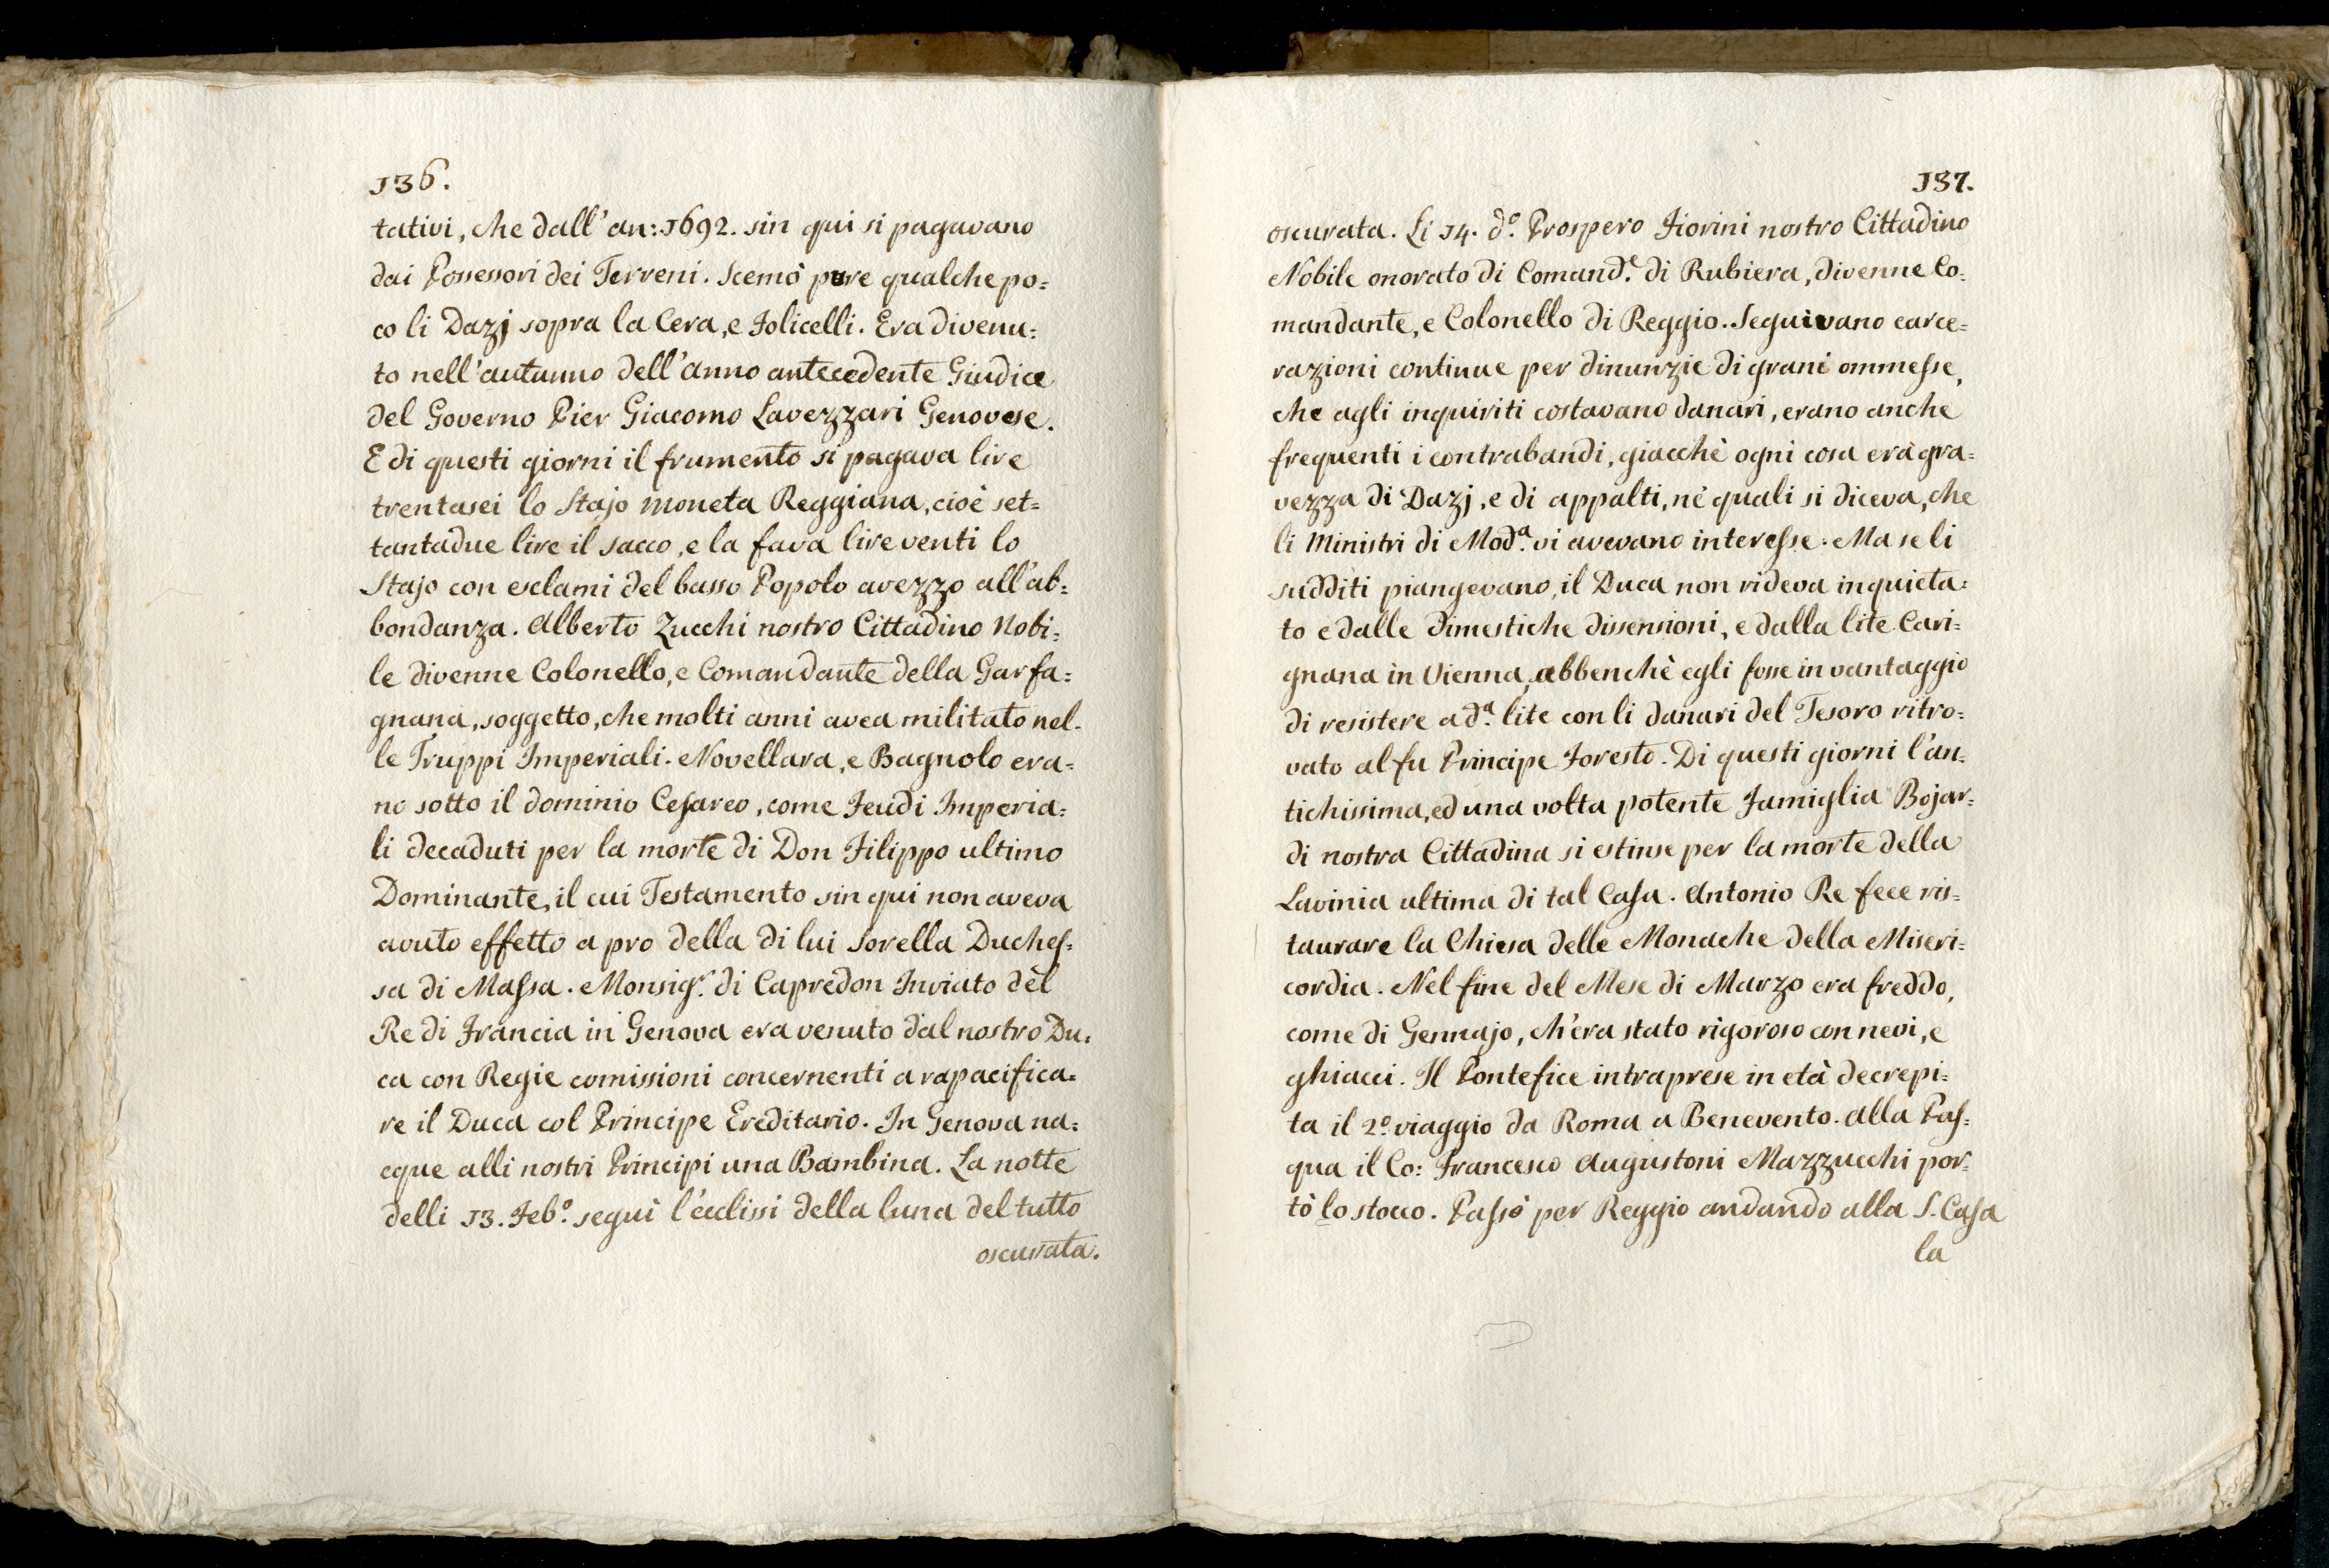 136.
tativi, che dall' an: 1692. sin qui si pagavano
dai Possessori dei Terreni. Scemò pure qualche po=
co li Dazj sopra la Cera, e Folicelli. Era divenu=
to nell'autunno dell'anno antecedente Giudice
del Governo Pier Giacomo Lavezzari Genovese.
E di questi giorni il frumento si pagava lire
trentasei lo Stajo moneta Reggiana, cioè set=
tantadue lire il sacco, e la fava lire venti lo
Stajo con esclami del basso Popolo avezzo all'ab=
bondanza. Alberto Zucchi nostro Cittadino Nobi=
le divenne Colonello, e Comandante della Garfa=
gnana, soggetto, che molti anni avea militato nel=
le Truppi Imperiali. Novellara, e Bagnolo era=
no sotto il dominio Cesareo, come Feudi Imperia=
li decaduti per la morte di Don Filippo ultimo
Dominante, il cui Testamento sin qui non aveva
avuto effetto a pro della di lui Sorella Duches=
sa di Massa. Monsigr. di Capredon Inviato del
Re di Francia in Genova era venuto dal nostro Du=
ca con Regie comissioni concernenti a rapacifica=
re il Duca col Principe Ereditario. In Genova na=
cque alli nostri Principi una Bambina. La notte
delli 13. Febo. seguì l'ecclissi della luna del tutto
oscurata.
137.
oscurata. Li 14. do. Prospero Fiorini nostro Cittadino
Nobile onorato di Comande. di Rubiera, divenne Co=
mandante, e Colonello di Reggio. Seguivano carce=
razioni continue per dinunzie di grani ommesse,
che agli inquiriti costavano danari, erano anche
frequenti i contrabandi, giacchè ogni cosa era gra=
vezza di Dazj, e di appalti, nè quali si diceva, che
li Ministri di Moda. vi avevano interesse. Ma se li
sudditi piangevano, il Duca non rideva inquieta=
to e dalle dimestiche dissensioni, e dalla lite Cari=
gnana in Vienna, abbenchè egli fosse in vantaggio
di resistere a da. lite con li danari del Tesoro ritro=
vato al fu Principe Foresto. Di questi giorni l'an=
tichissima, ed una volta potente Famiglia Bojar=
di nostra Cittadina si estinse per la morte della
Lavinia ultima di tal Casa. Antonio Re fece ris=
taurare la Chiesa delle Monache della Miseri=
cordia. Nel fine del Mese di Marzo era freddo,
come di Gennajo, ch'era stato rigoroso con nevi, e
ghiacci. Il Pontefice intraprese in età decrepi=
ta il 2o. viaggio da Roma a Benevento. Alla Pas=
qua il Co: Francesco Augustoni Mazzucchi por=
tò lo stocco. Passò per Reggio andando alla S. Casa
la